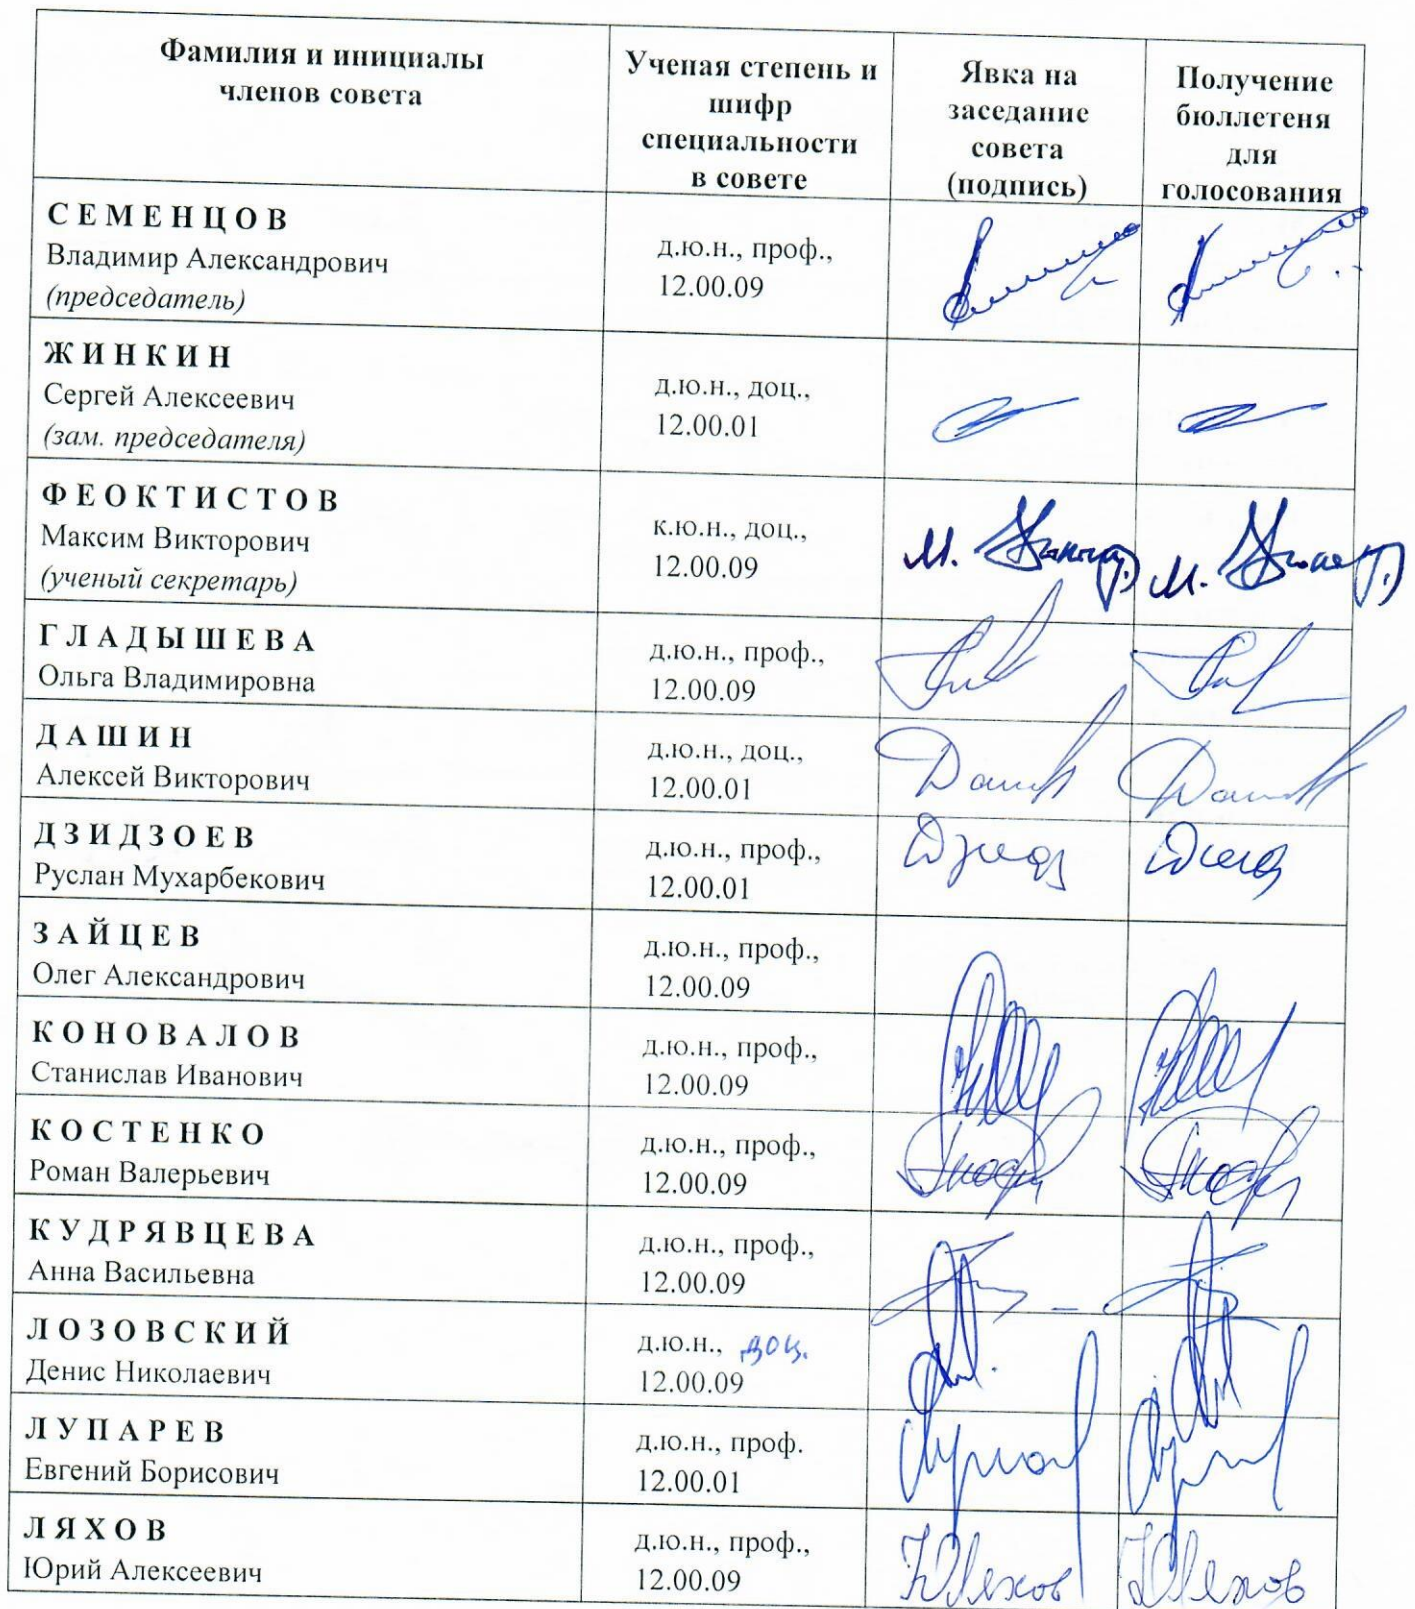 Фамилия и инициалы
членов совета
Ученая степень и
шифр
специальности
в совете
Явка на
заседание
совета
(подпись)
Получение
бюллетеня
для
голосования
СЕМЕНЦОВ
Владимир Александрович
(председатель)
д.ю.н., проф.,
12.00.09
ЖИНКИН
Сергей Алексеевич
(зам. председателя)
д.ю.н., доц.,
12.00.01
ФЕОКТИСТОВ
Максим Викторович
(ученый секретарь)
к.ю.н., доц.,
12.00.09
М.
М.
ГЛАДЫШЕВА
Ольга Владимировна
д.ю.н., проф.,
12.00.09
ДАШИН
Алексей Викторович
д.ю.н., доц.,
12.00.01
ДЗИДЗОЕВ
Руслан Мухарбекович
д.ю.н., проф.,
12.00.01
ЗАЙЦЕВ
Олег Александрович
д.ю.н., проф.,
12.00.09
КОНОВАЛОВ
Станислав Иванович
д.ю.н., проф.,
12.00.09
КОСТЕНКО
Роман Валерьевич
д.ю.н., проф.,
12.00.09
КУДРЯВЦЕВА
Анна Васильевна
д.ю.н., проф.,
12.00.09
ЛОЗОВСКИЙ
Денис Николаевич
д.ю.н., доц.
12.00.09
ЛУПАРЕВ
Евгений Борисович
д.ю.н., проф.
12.00.01
ЛЯХОВ
Юрий Алексеевич
д.ю.н., проф.,
12.00.09
ЮЛяхов
ЮЛяхов